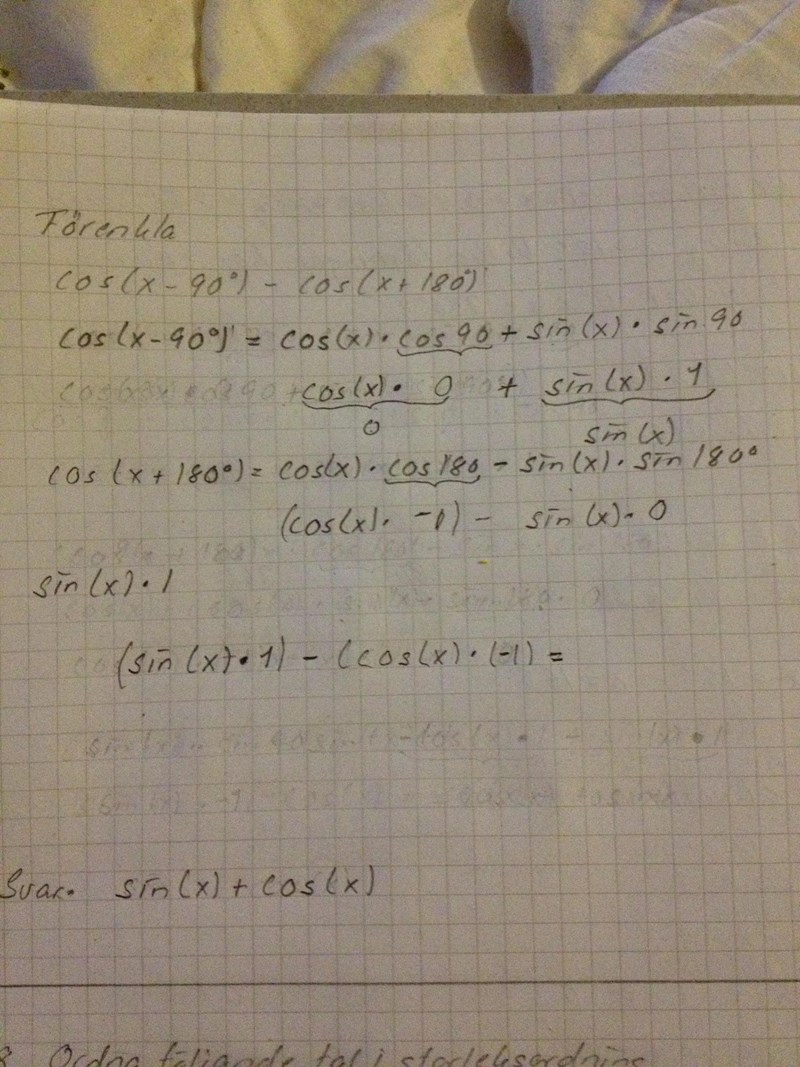 Förenkla
cos(x - 90°) - cos(x + 180°)
cos(x - 90°) = cos(x) · cos 90 + sin(x) · sin 90
cos(x) · 0 + sin(x) · 1
0 sin(x)
cos (x + 180°) = cos(x) · cos 180 - sin(x) · sin 180°
(cos(x) · -1) - sin(x) · 0
sin(x) · 1
(sin(x) · 1) - (cos(x) · (-1) =
Svar. sin(x) + cos(x)
8 Ordna följande tal i storleksordning